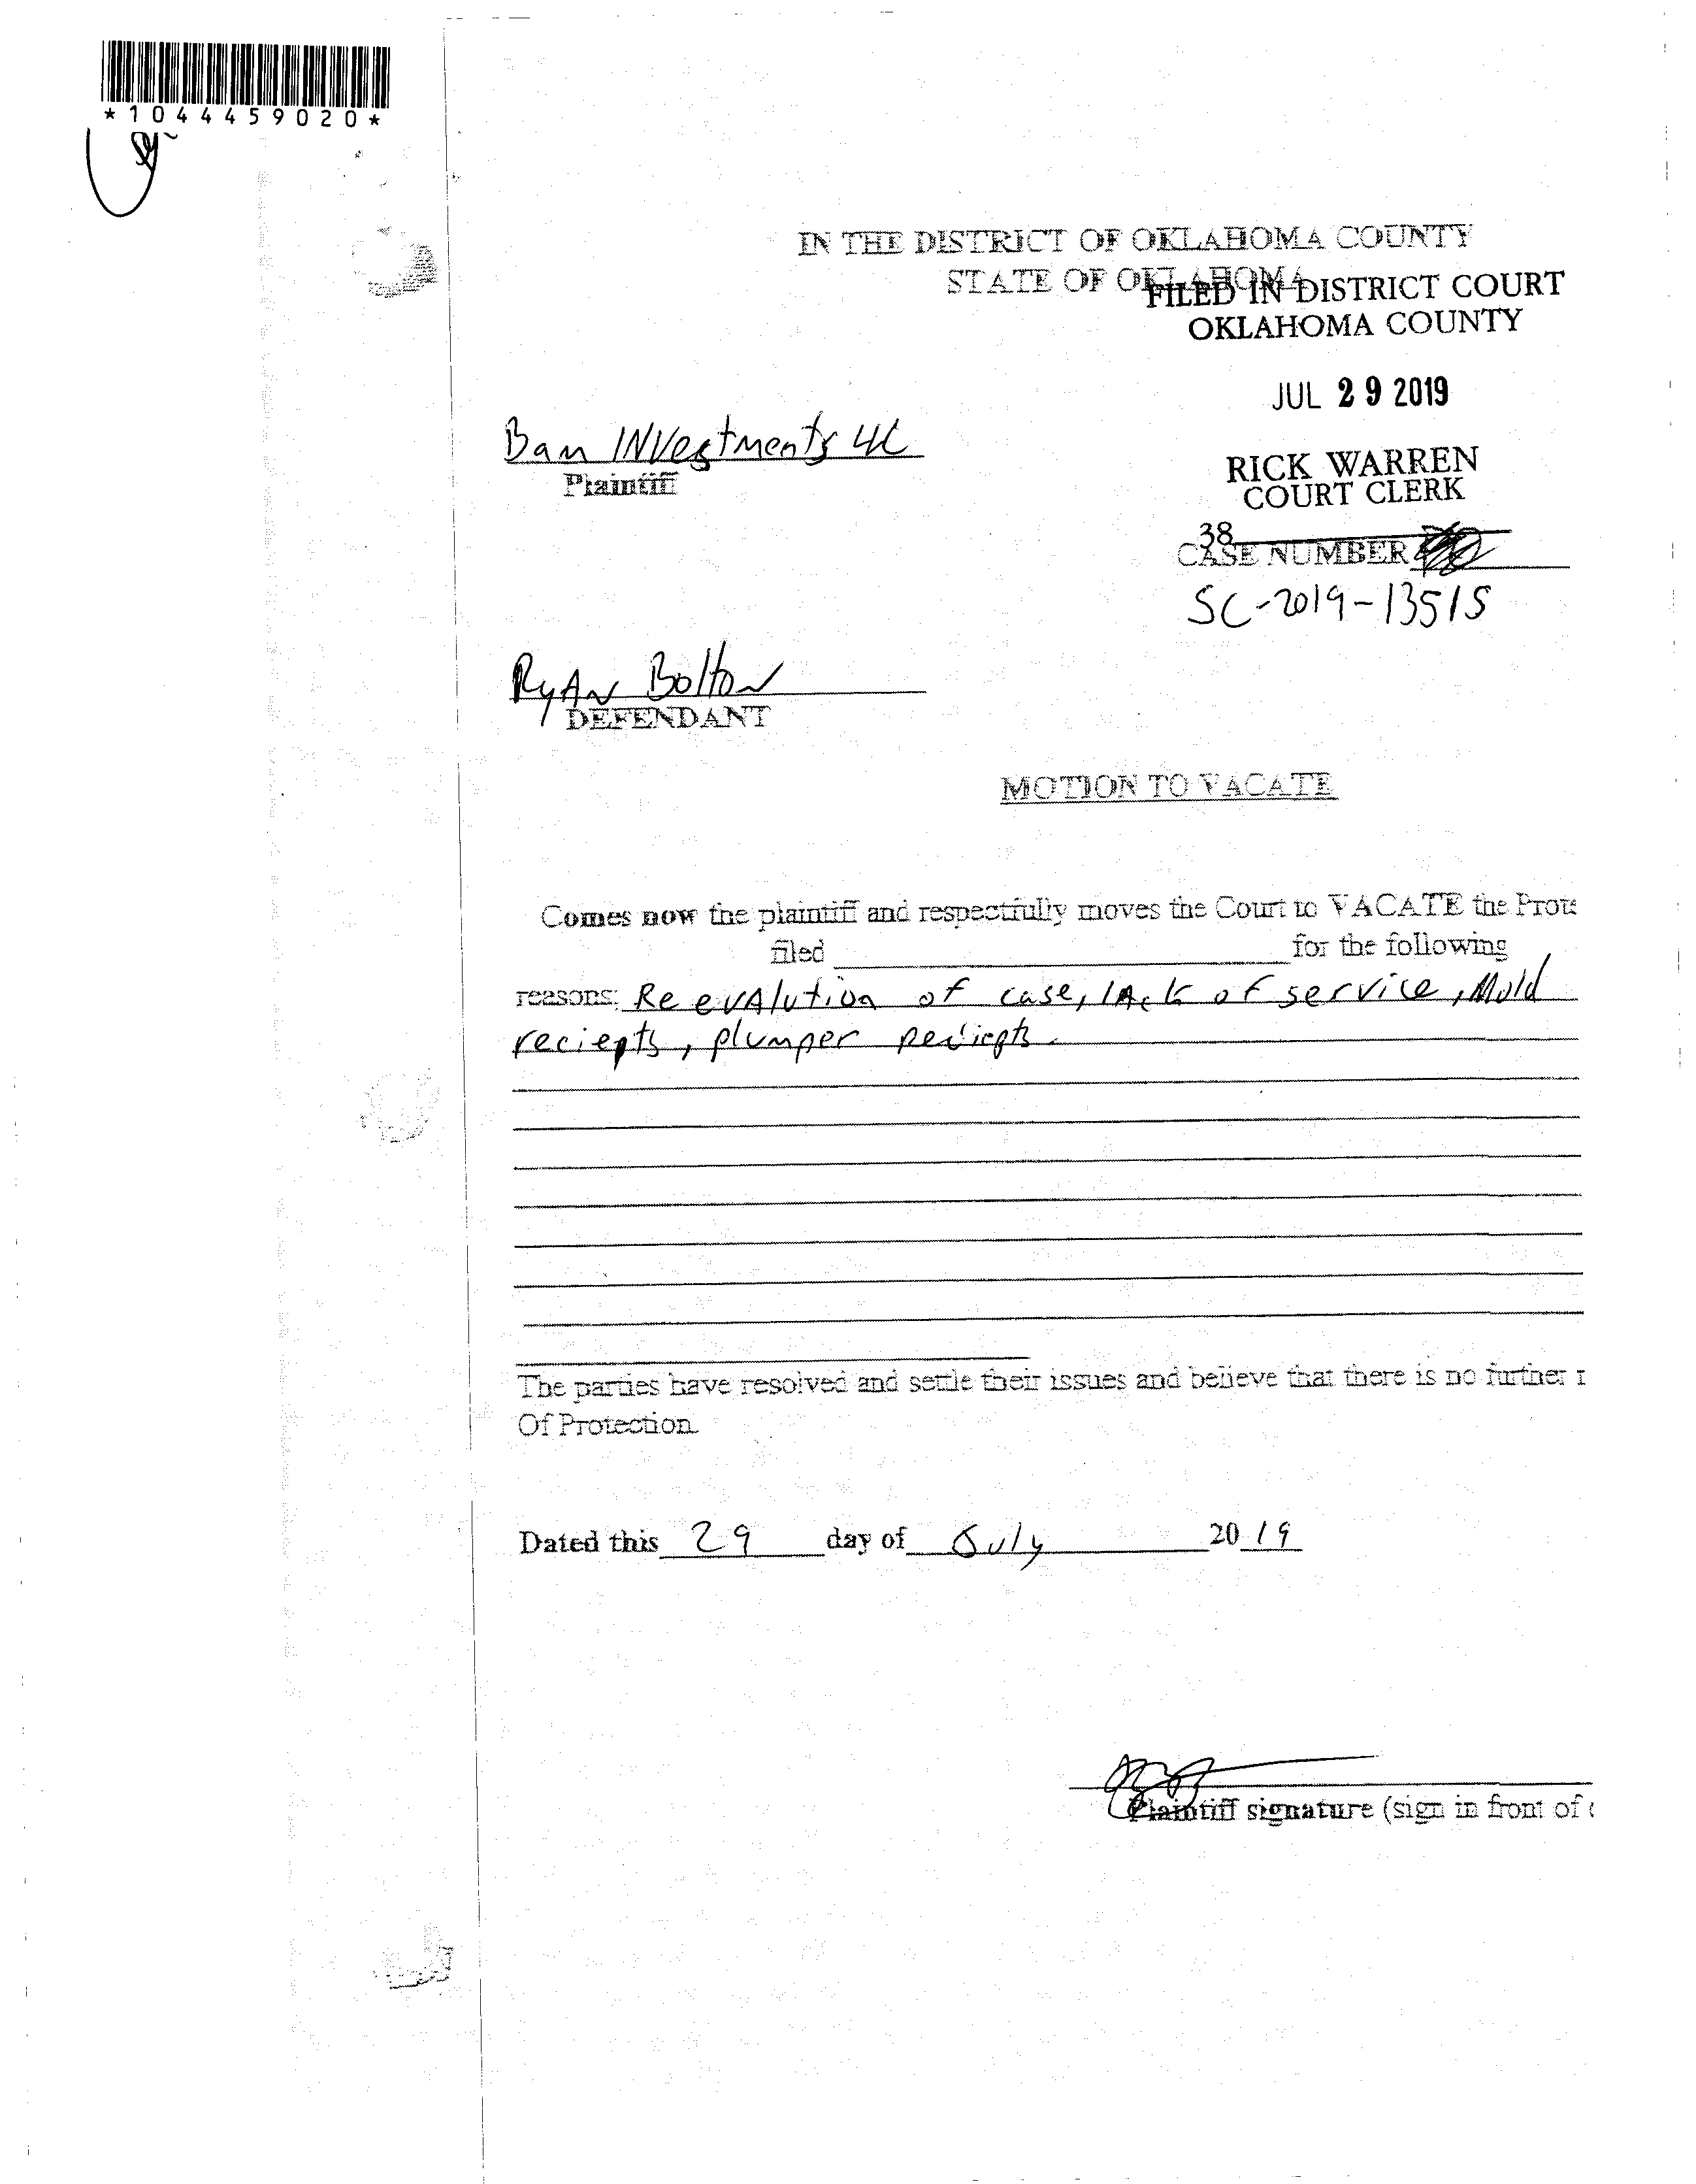 *1044459020*
IN THE DISTRICT OF OKLAHOMA COUNTY
STATE OF OKLAHOMA
FILED IN DISTRICT COURT
OKLAHOMA COUNTY
JUL 29 2019
Bam INVestments LLC
Plaintiff
RICK WARREN
COURT CLERK
38
CASE NUMBER
SC-2019-13515
RyAN Bolton
DEFENDANT
MOTION TO VACATE
Comes now the plaintiff and respectfully moves the Court to VACATE the Prote
filed for the following
reasons: Re evAlution of case, lAck of service, Mold
reciepts, plumper reciepts.
The parties have resolved and settle their issues and believe that there is no further
Of Protection.
Dated this 29 day of July 2019
Plaintiff signature (sign in front of